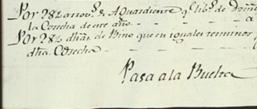 Por 282 arrov.s de Aguardiente q.e hizo de
la Cosecha de este año
Por 282 dhas de Bino que en iguales terminos
dha Cosecha
Pasa ala Buelta